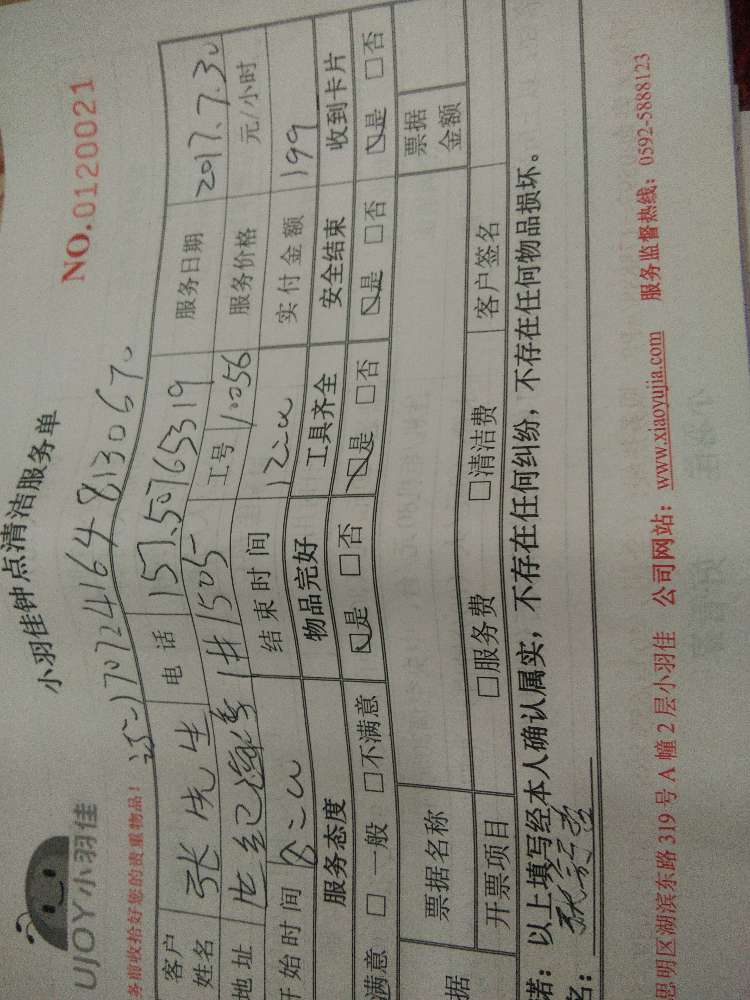 小羽佳钟点清洁服务单
NO.0120021
UJOY小羽佳
务前收拾好您的贵重物品!
客户姓名 张先生 电话 服务日期 2017.7.30
地址 世纪 1#1505 工号 10056 服务价格 元/小时
开始时间 8:00 结束时间 12:00 实付金额 199
服务态度 物品完好 工具齐全 安全结束 收到卡片
满意 □ 一般 □不满意 是 □否 是 □否 是 □否 是 □否
据 票据名称 票据金额
开票项目 □服务费 □清洁费 客户签名
诺:以上填写经本人确认属实,不存在任何纠纷,不存在任何物品损坏。
名:
思明区湖滨东路319号A幢2层小羽佳 公司网站:www.xiaoyujia.com 服务监督热线:0592-5888123